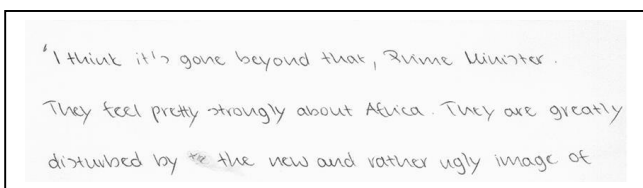 'I think it's gone beyond that, Prime Minister.
They feel pretty strongly about Africa. They are greatly
disturbed by the new and rather ugly image of